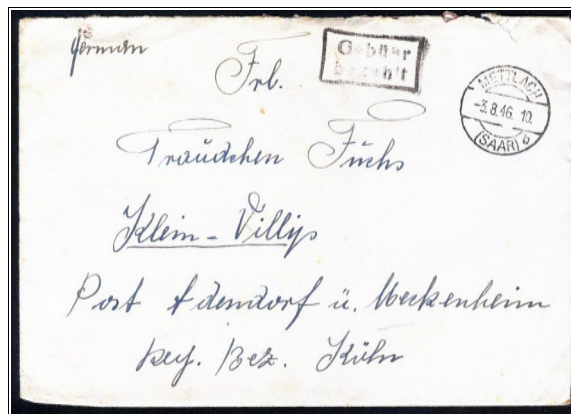 German
Gebühr
bezahlt
METTLACH
-3.8.46. 10
(SAAR) b
Frl.
Traudchen Fuchs
Klein - Villip
Post Adendorf ü. Meckenheim
Bez. Köln